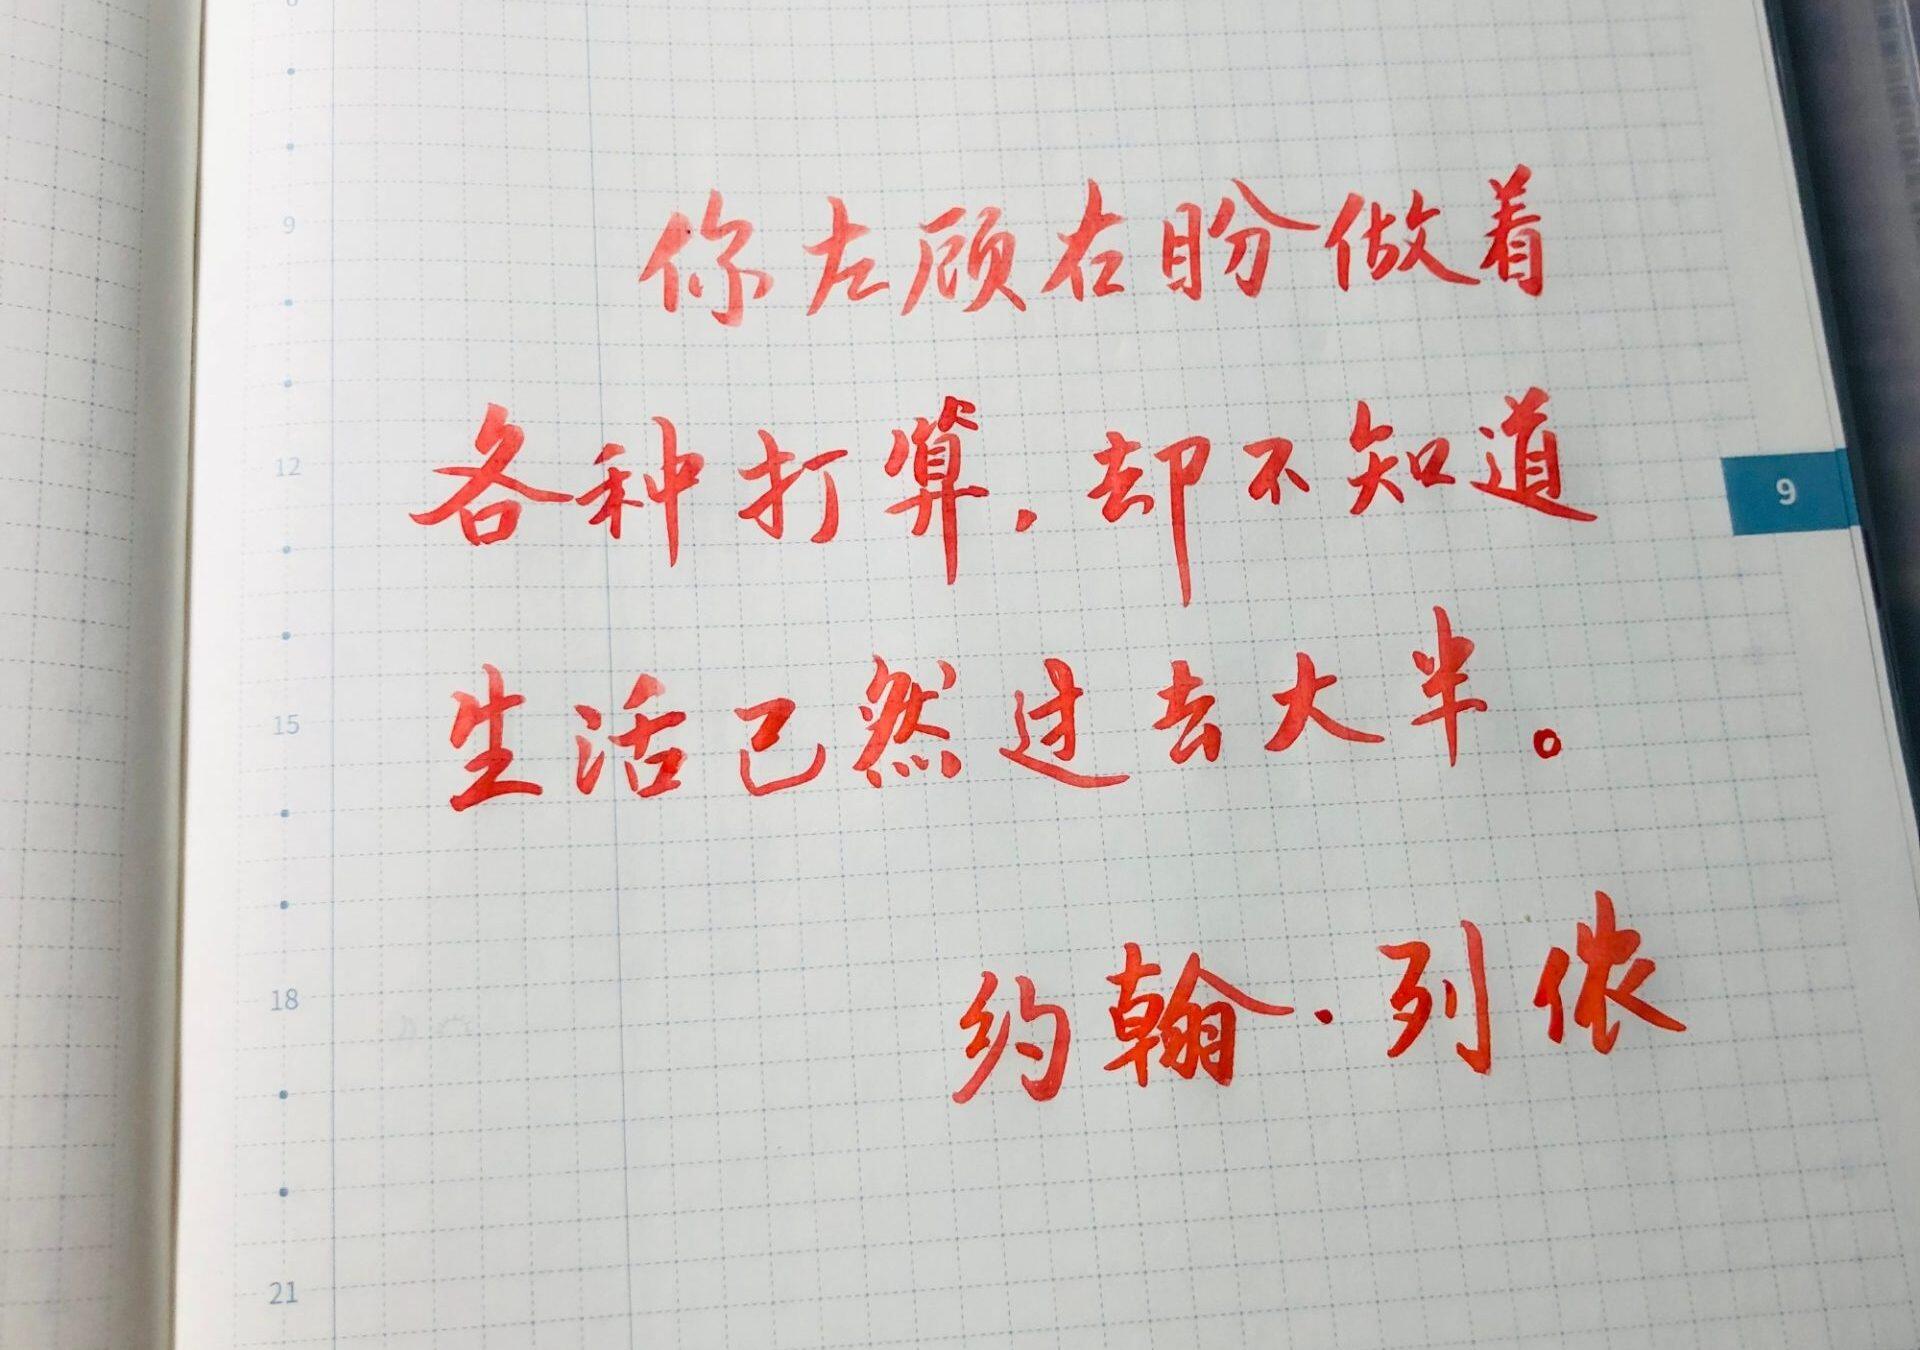 9
你左顾右盼做着
12
各种打算,却不知道
9
15
生活已然过去大半。
18
约翰·列侬
21